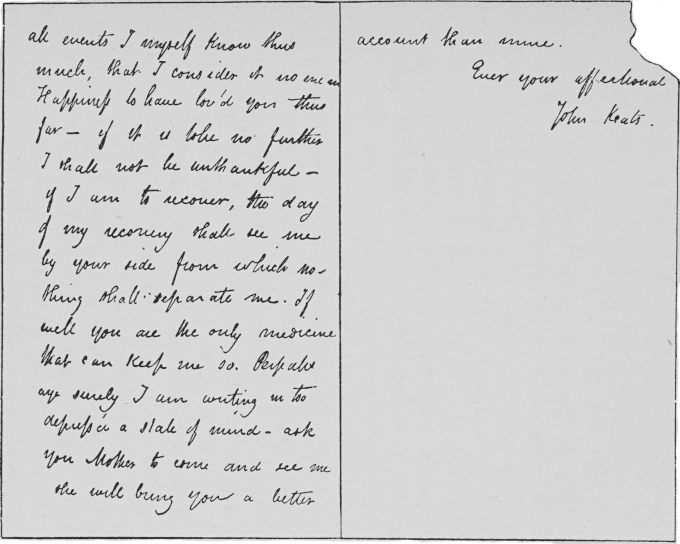 all events I myself know thus
much, that I consider it no mean
Happiness to have lov'd you thus
far — if it is to be no further
I shall not be unthankful —
if I am to recover, the day
of my recovery shall see me
by your side from which no-
thing shall separate me. If
well you are the only medicine
that can keep me so. Perhaps
aye surely I am writing in too
depress'd a state of mind — ask
you Mother to come and see me
she will bring you a better
account than mine.
Ever your affectionate
John Keats.